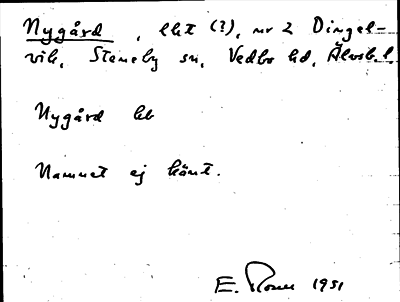 Nygård, lht (?), nr 2 Dingel-
vik, Steneby sn, Vedbo hd, Älvsb. l.
Nygård kb
Namnet ej känt.
E. Rosen 1951